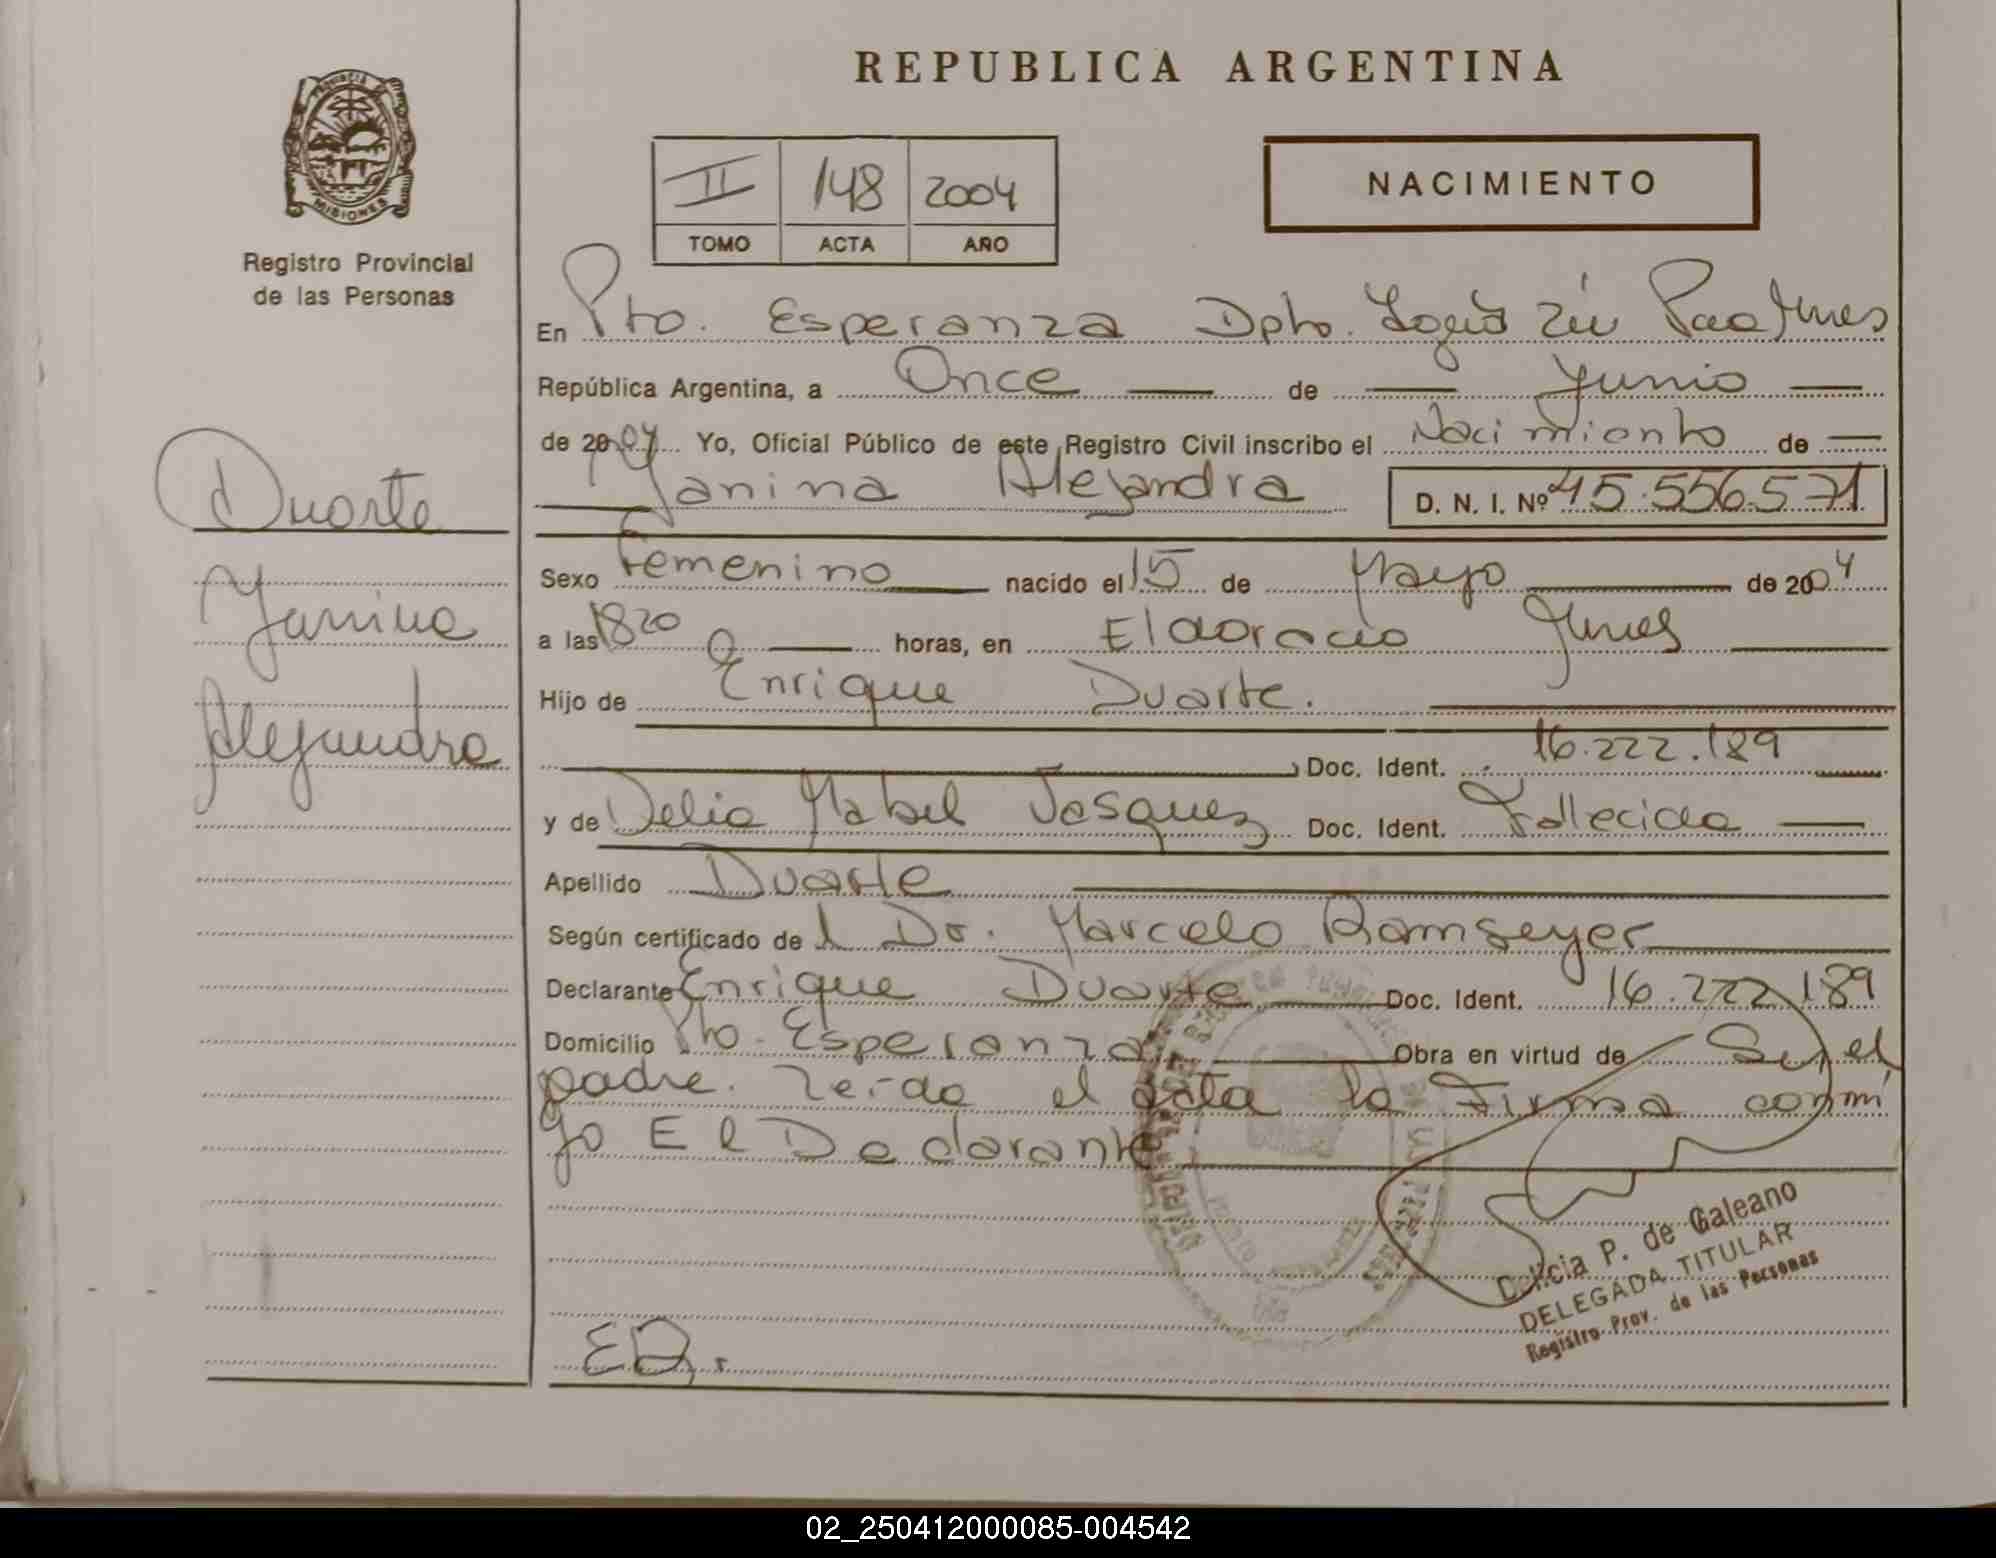 REPUBLICA ARGENTINA
PROVINCIA DE
MISIONES
Registro Provincial
de las Personas
II 148 2004
TOMO ACTA AÑO
NACIMIENTO
En Pto. Esperanza Dpto.
República Argentina, a Once de Junio
de 2004 Yo, Oficial Público de este Registro Civil inscribo el Nacimiento de
Yanina Alejandra D. N. I. Nº 45.556.571
Duarte
Yanina
Alejandra
Sexo Femenino nacido el 15 de Mayo de 2004
a las 1820 horas, en Eldorado
Hijo de Enrique Duarte.
Doc. Ident. 16.222.189
y de Delia Mabel Vasquez Doc. Ident. Fallecida
Apellido Duarte
Según certificado del Dr. Marcelo Ramseyer
Declarante Enrique Duarte Doc. Ident. 16.222.189
Domicilio Pto. Esperanza Obra en virtud de Ser el
padre. Leida el acta la Firma conmi
go El Declarante
Delicia P. de Galeano
DELEGADA TITULAR
Registro Prov. de las Personas
ED.
02_250412000085-004542